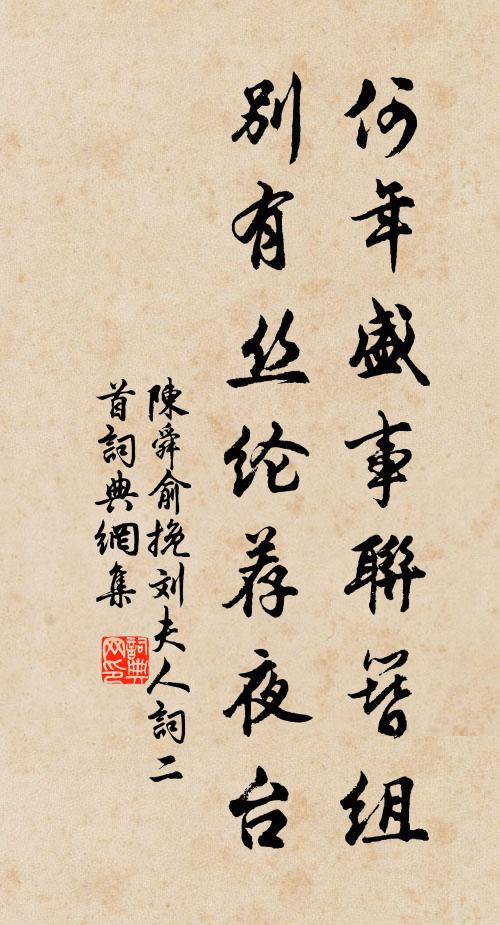 何年盛事聯簪組
别有丝纶荐夜台
陳舜俞挽刘夫人詞二
首詞典網集
詞典
网印